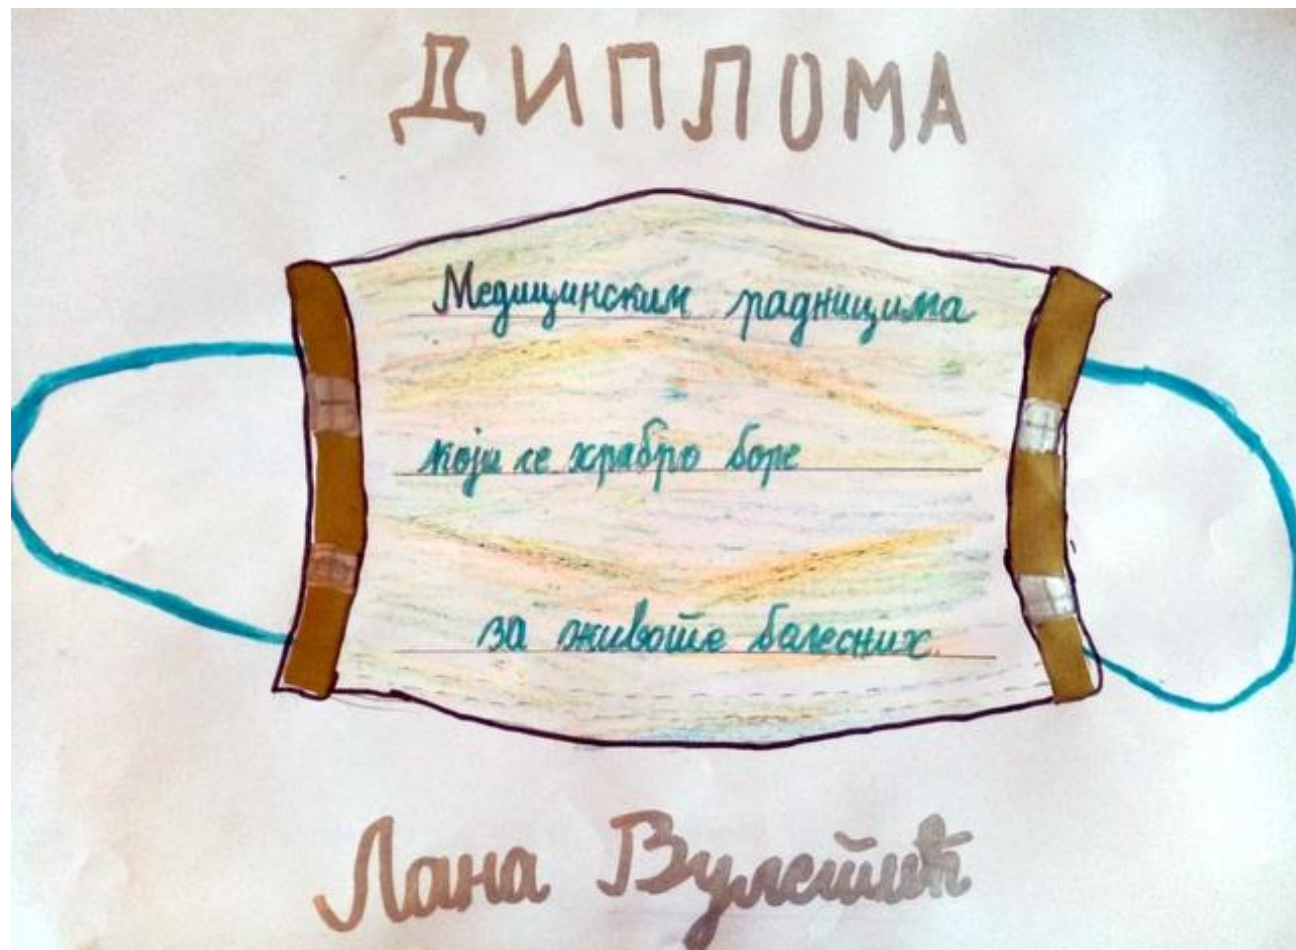 ДИПЛОМА
Медицинским радницима
који се храбро боре
за животе болесних.
Лана Вулетић